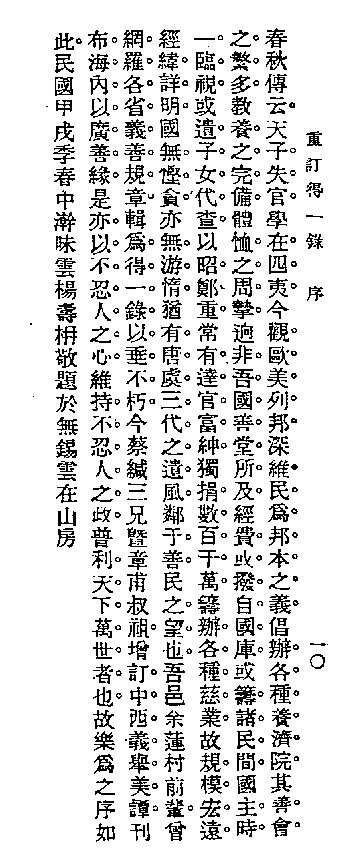 重訂得一錄 序
一〇
春秋傳云。天子失官。學在四夷。今觀歐美列邦。深維民爲邦本之義。倡辦各種養濟院。其善會
之繁多。教養之完備。體恤之周摯。迥非吾國善堂所及。經費或撥自國庫。或籌諸民間。國主時
一臨視。或遺子女代查。以昭鄭重。常有達官富紳。獨捐數百千萬。籌辦各種慈業。故規模宏遠。
經緯詳明。國無慳貪。亦無游惰。猶有唐虞三代之遺風。鄰于善。民之望也。吾邑余蓮村前輩。曾
網羅各省義善規章。輯爲得一錄。以垂不朽。今蔡緘三兄暨章甫叔祖。增訂中西義舉美譚。刊
布海內。以廣善緣。是亦以不忍人之心。維持不忍人之政。普利天下萬世者也。故樂爲之序如
此。民國甲戌季春中澣味雲楊壽枬敬題於無錫雲在山房